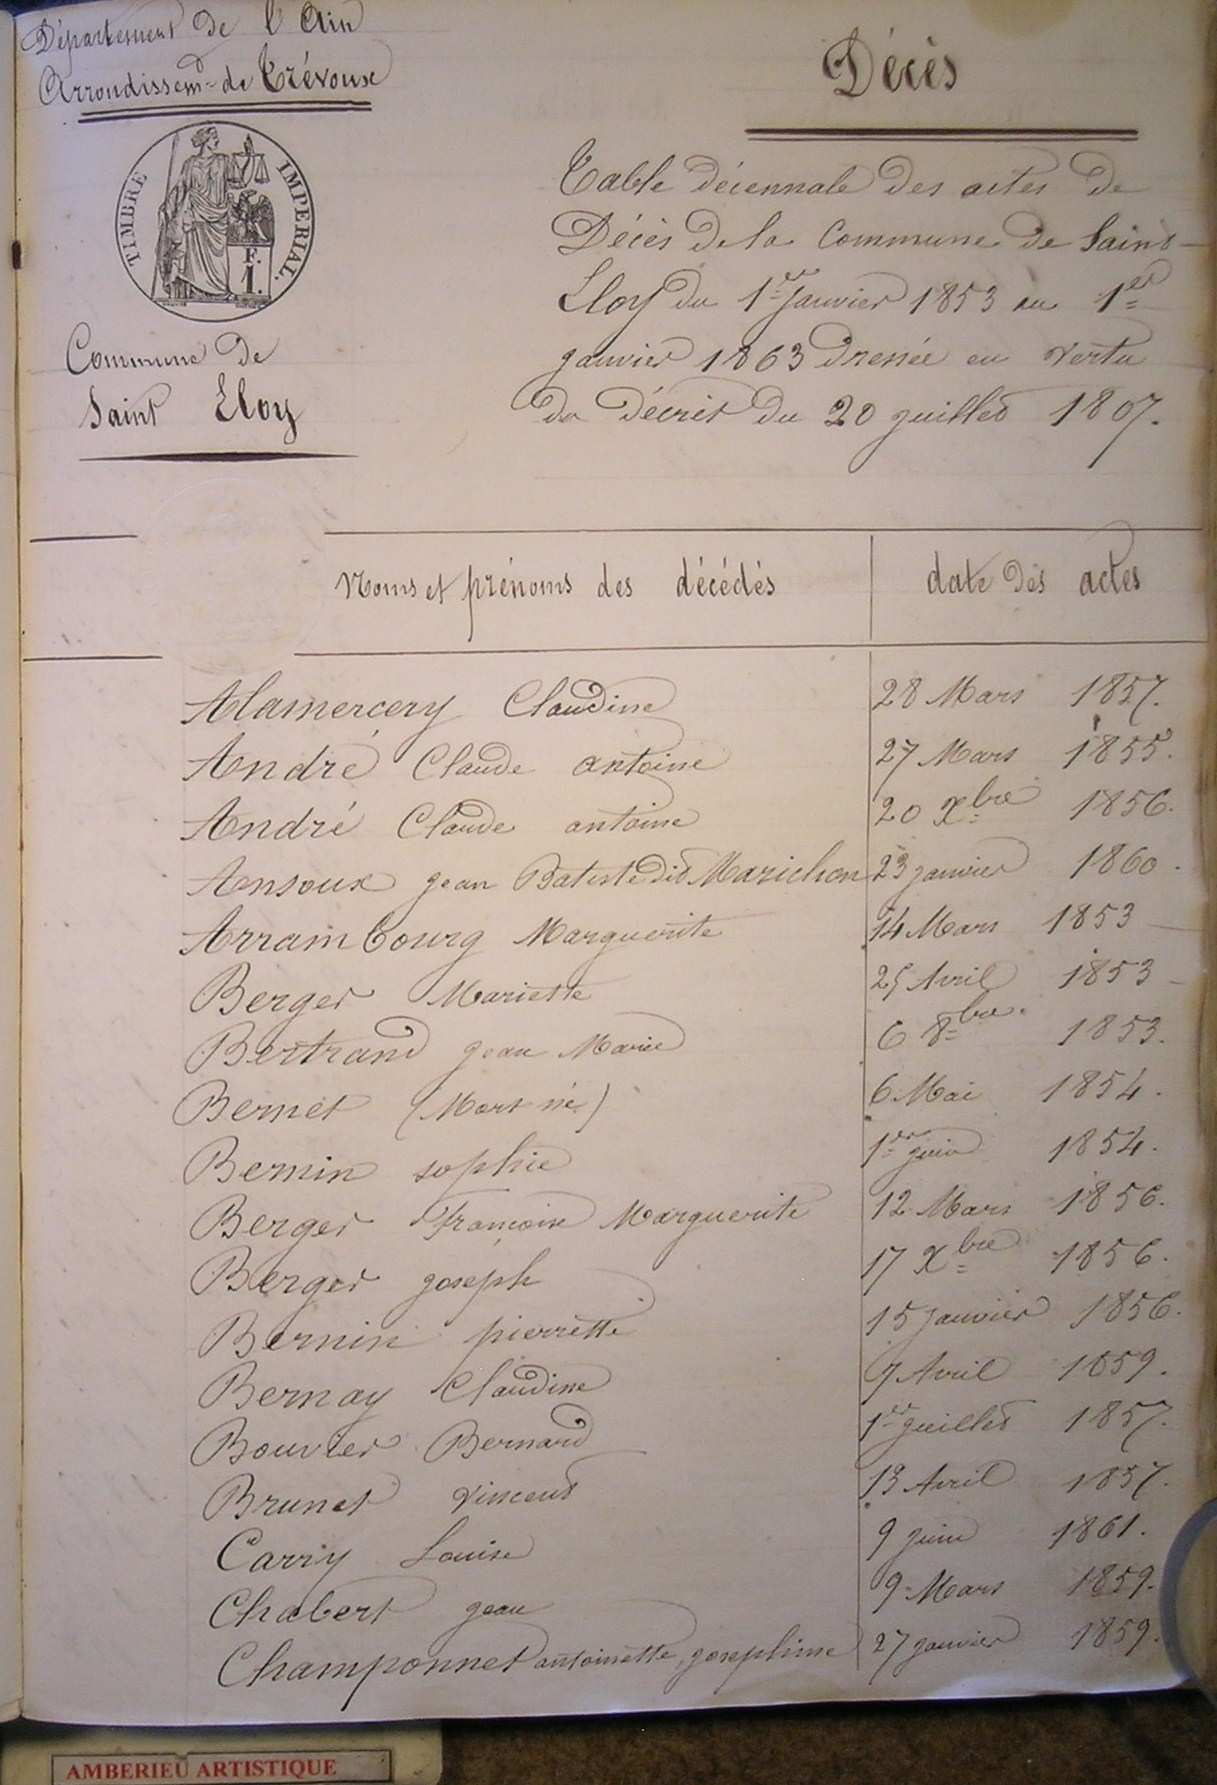 Département de l'Ain
Arrondissem.d de Trévoux
TIMBRE IMPERIAL.
F.
1.
Commune de
Saint Eloy
Décès
Table décennale des actes de
Décès de la Commune de Saint
Eloy du 1er Janvier 1853 au 1er
janvier 1863 Dressée en vertu
du Décret du 20 juillet 1807.
Noms et prénoms des décédés date des actes
Alamercery Claudine 28 Mars 1857.
André Claude antoine 27 Mars 1855.
André Claude antoine 20 Xbre 1856.
Ansoux jean Batiste dit Marichon 23 janvier 1860.
Arrambourg Marguerite 14 Mars 1853
Berger Mariette 25 Avril 1853
Bertrand jean Marie 6 8bre. 1853.
Bernet (Mort né) 6 Mai 1854.
Bernin sophie 1er juin 1854.
Berger Francoise Marguerite 12 Mars 1856.
Berger joseph 17 Xbre 1856.
Bernin pierrette 15 janvier 1856.
Bernay Claudine 7 Avril 1859.
Bouvier Bernard 1er juillet 1857.
Brunet Vincent 13 Avril 1857.
Carry Louise 9 juin 1861.
Chabert jean 9 Mars 1859.
Champonnet antoinette, josephine 27 janvier 1859.
AMBERIEU ARTISTIQUE